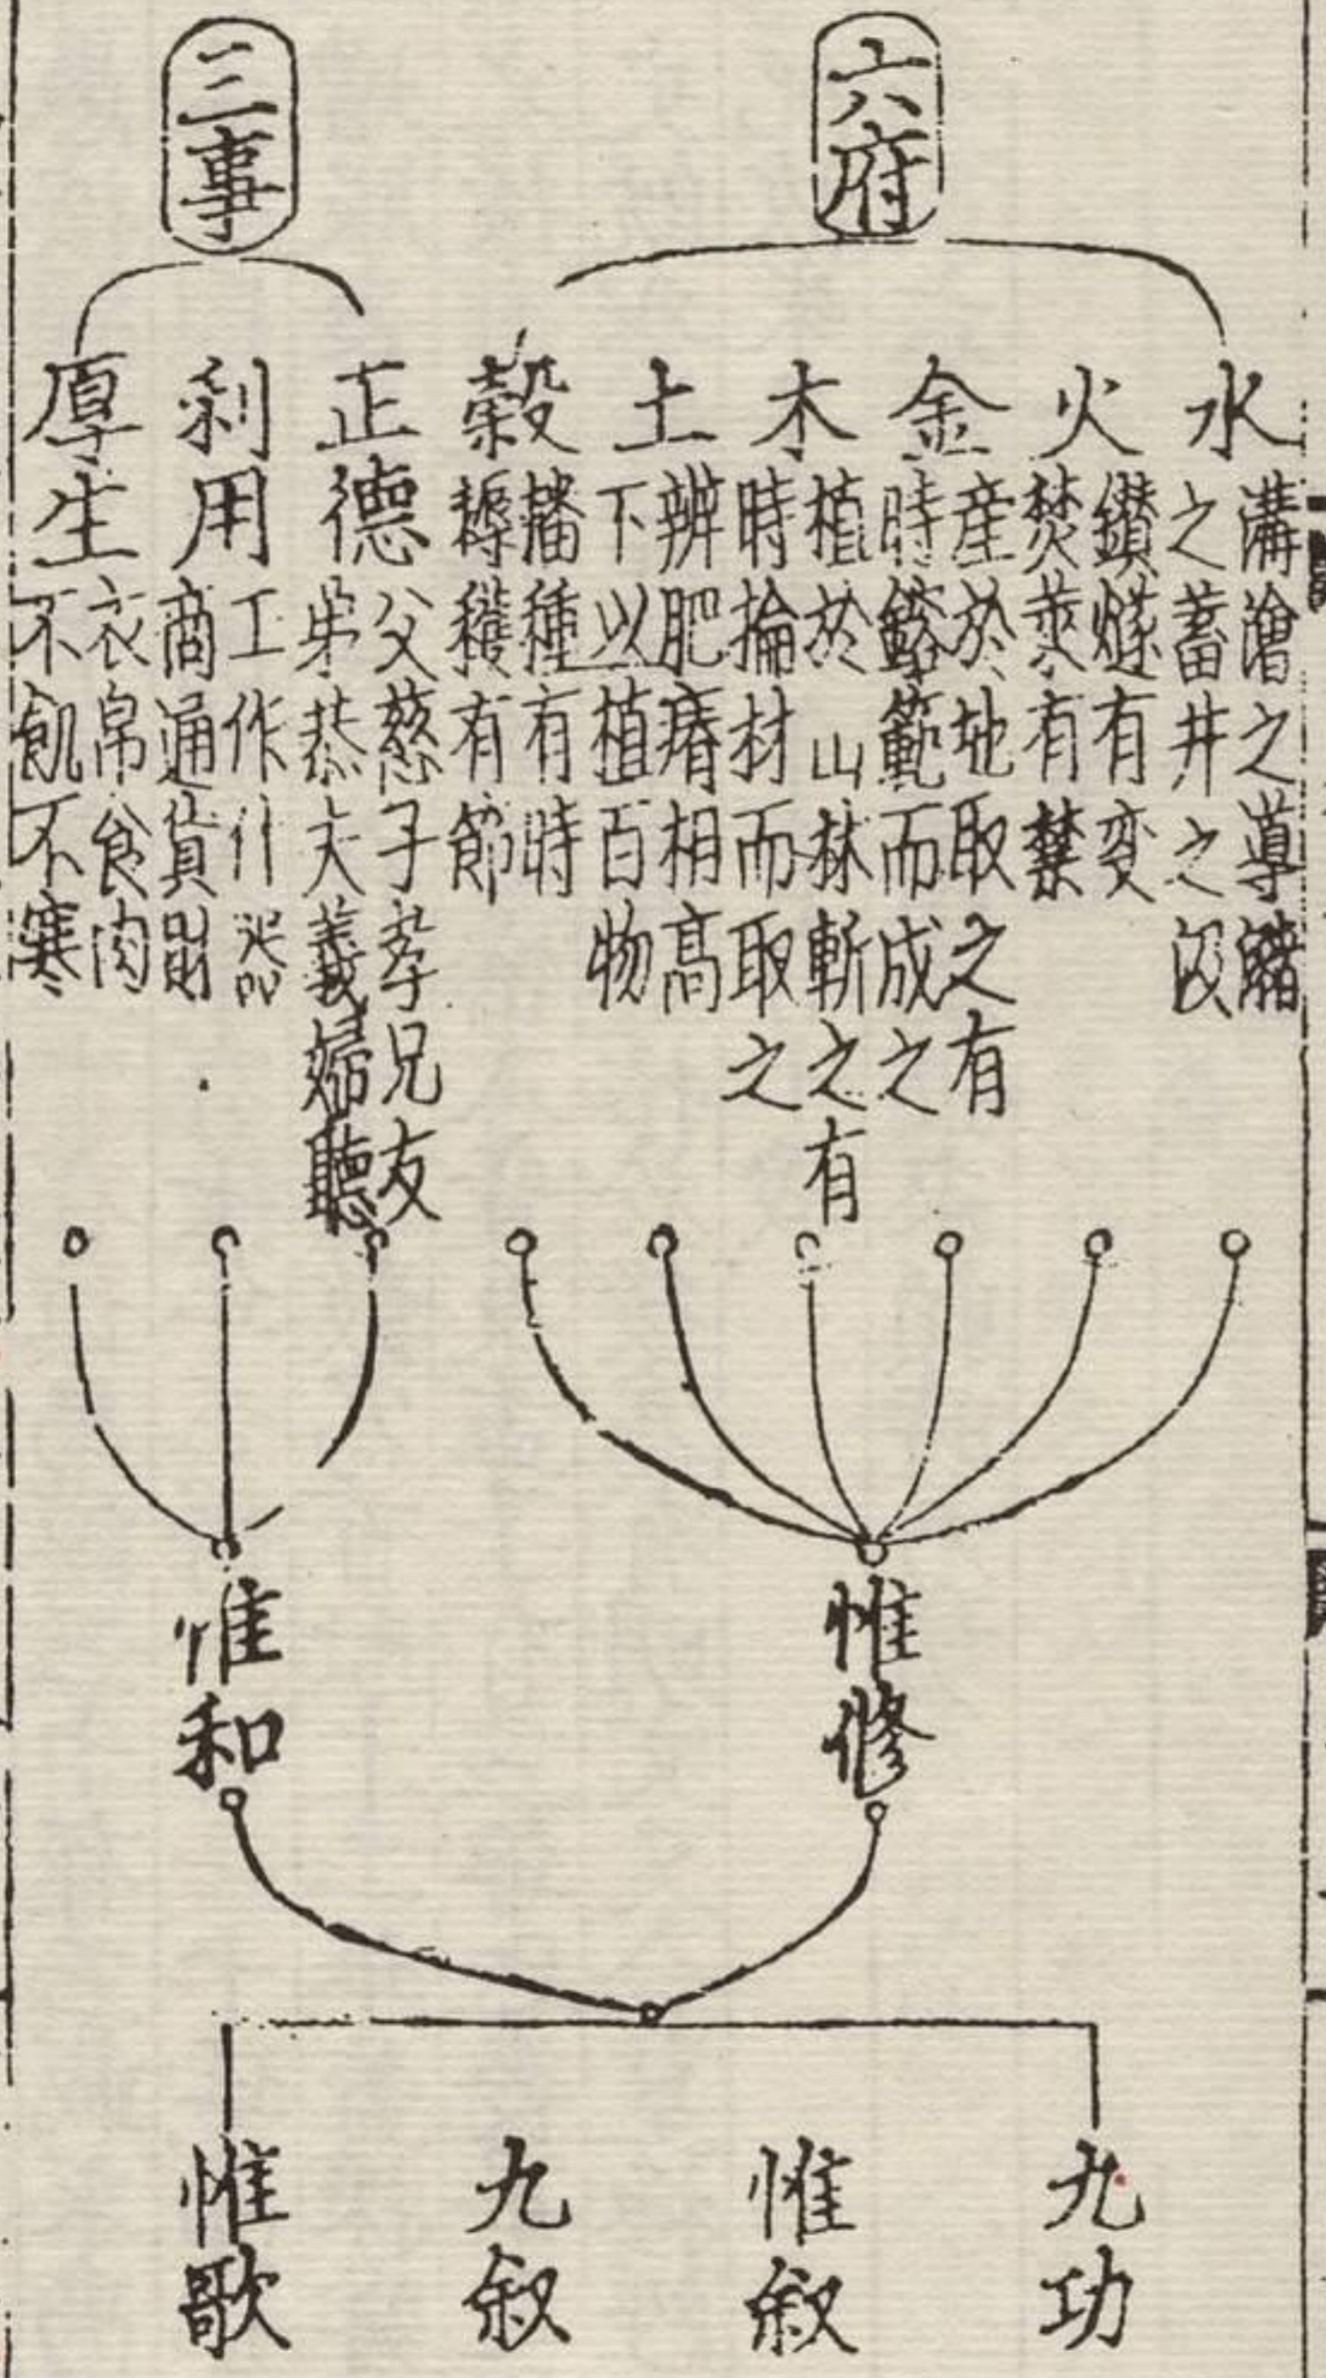 六府
水
溝澮之導瀦
之蓄井之汲
火
鑽燧有変
焚萊有禁
金
産於地取之有
時鎔範而成之
木
植於山林斬之有
時掄材而取之
土
辨肥瘠相高
下以植百物
榖
播種有時
耨穫有節
三事
正德
父慈子孝兄友
弟恭夫義婦聽
利用
工作什器
商通貨財
厚生
衣帛食肉
不飢不寒
惟修
惟和
九功
惟敘
九敘
惟歌